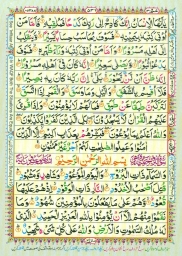 يٰۤاَيُّهَا الْاِنْسَانُ اِنَّكَ كَادِحٌ اِلٰى رَبِّكَ كَدْحًا فَمُلٰقِيْهِ فَاَمَّا مَنْ
اُوْتِيَ كِتٰبَهٗ بِيَمِيْنِهٖ فَسَوْفَ يُحَاسَبُ حِسَابًا يَّسِيْرًا وَّيَنْقَلِبُ
اِلٰۤى اَهْلِهٖ مَسْرُوْرًا وَاَمَّا مَنْ اُوْتِيَ كِتٰبَهٗ وَرَآءَ ظَهْرِهٖ فَسَوْفَ
يَدْعُوْا ثُبُوْرًا وَّيَصْلٰى سَعِيْرًا اِنَّهٗ كَانَ فِيْۤ اَهْلِهٖ مَسْرُوْرًا
اِنَّهٗ ظَنَّ اَنْ لَّنْ يَّحُوْرَ بَلٰۤى اِنَّ رَبَّهٗ كَانَ بِهٖ بَصِيْرًا
فَلَاۤ اُقْسِمُ بِالشَّفَقِ وَالَّيْلِ وَمَا وَسَقَ وَالْقَمَرِ اِذَا اتَّسَقَ
لَتَرْكَبُنَّ طَبَقًا عَنْ طَبَقٍ فَمَا لَهُمْ لَا يُؤْمِنُوْنَ وَاِذَا قُرِئَ
عَلَيْهِمُ الْقُرْاٰنُ لَا يَسْجُدُوْنَ بَلِ الَّذِيْنَ كَفَرُوْا يُكَذِّبُوْنَ
وَاللّٰهُ اَعْلَمُ بِمَا يُوْعُوْنَ فَبَشِّرْهُمْ بِعَذَابٍ اَلِيْمٍ اِلَّا الَّذِيْنَ
اٰمَنُوْا وَعَمِلُوا الصّٰلِحٰتِ لَهُمْ اَجْرٌ غَيْرُ مَمْنُوْنٍ
بِسْمِ اللّٰهِ الرَّحْمٰنِ الرَّحِيْمِ
وَالسَّمَآءِ ذَاتِ الْبُرُوْجِ وَالْيَوْمِ الْمَوْعُوْدِ وَشَاهِدٍ وَّمَشْهُوْدٍ
قُتِلَ اَصْحٰبُ الْاُخْدُوْدِ النَّارِ ذَاتِ الْوَقُوْدِ اِذْ هُمْ عَلَيْهَا
قُعُوْدٌ وَّهُمْ عَلٰى مَا يَفْعَلُوْنَ بِالْمُؤْمِنِيْنَ شُهُوْدٌ وَمَا نَقَمُوْا
مِنْهُمْ اِلَّاۤ اَنْ يُّؤْمِنُوْا بِاللّٰهِ الْعَزِيْزِ الْحَمِيْدِ الَّذِيْ